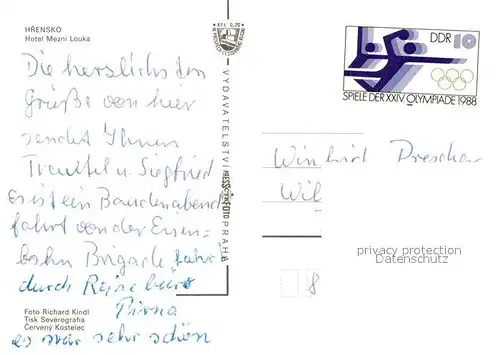 HŘENSKO
Hotel Mezní Louka
Die herzlichsten
Grüße von hier
sendet Ihnen
Trautel u. Siegfried
es ist ein Baudenabend
fahrt von der Eisen-
bahn Brigade "fahr"
durch Reisebüro
Pirna
es war sehr schön
Foto Richard Kindl
Tisk Severografia
Červený Kostelec
Kčs 0,20
VYDAVATELSTVÍ PRESSFOTO PRAHA
DDR 10
SPIELE DER XXIV. OLYMPIADE 1988
Winfried Drescher
Wil
8
privacy protection
Datenschutz